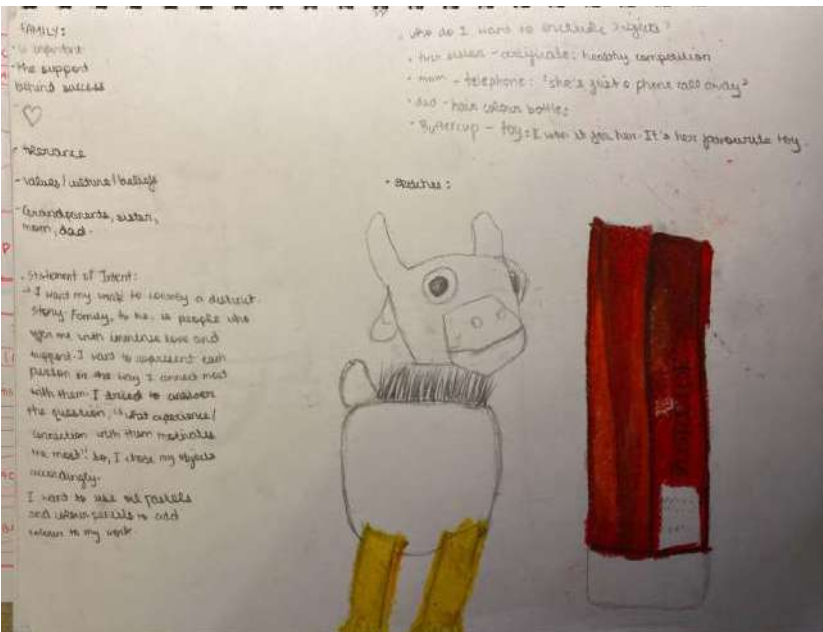 FAMILY:
- is important
- the support
behind success
- tolerance
- values/culture/beliefs
- Grandparents, sister,
mom, dad.
. Statement of Intent:
→ I want my work to convey a distinct
story. Family, to me, is people who
me with immense love and
support. I want to represent each
person in the way I connect most
with them. I tried to answer
the question, "what experience/
connection with them motivates
me most". So, I chose my objects
accordingly.
I want to use oil pastels
and colour pencils to add
colour to my work.
who do I want to include
- healthy composition
• mom - telephone: "she's just a phone call away"
• dad - hair colour bottle:
• Buttercup - toy: I won it for her. It's her favourite toy.
• Sketches: